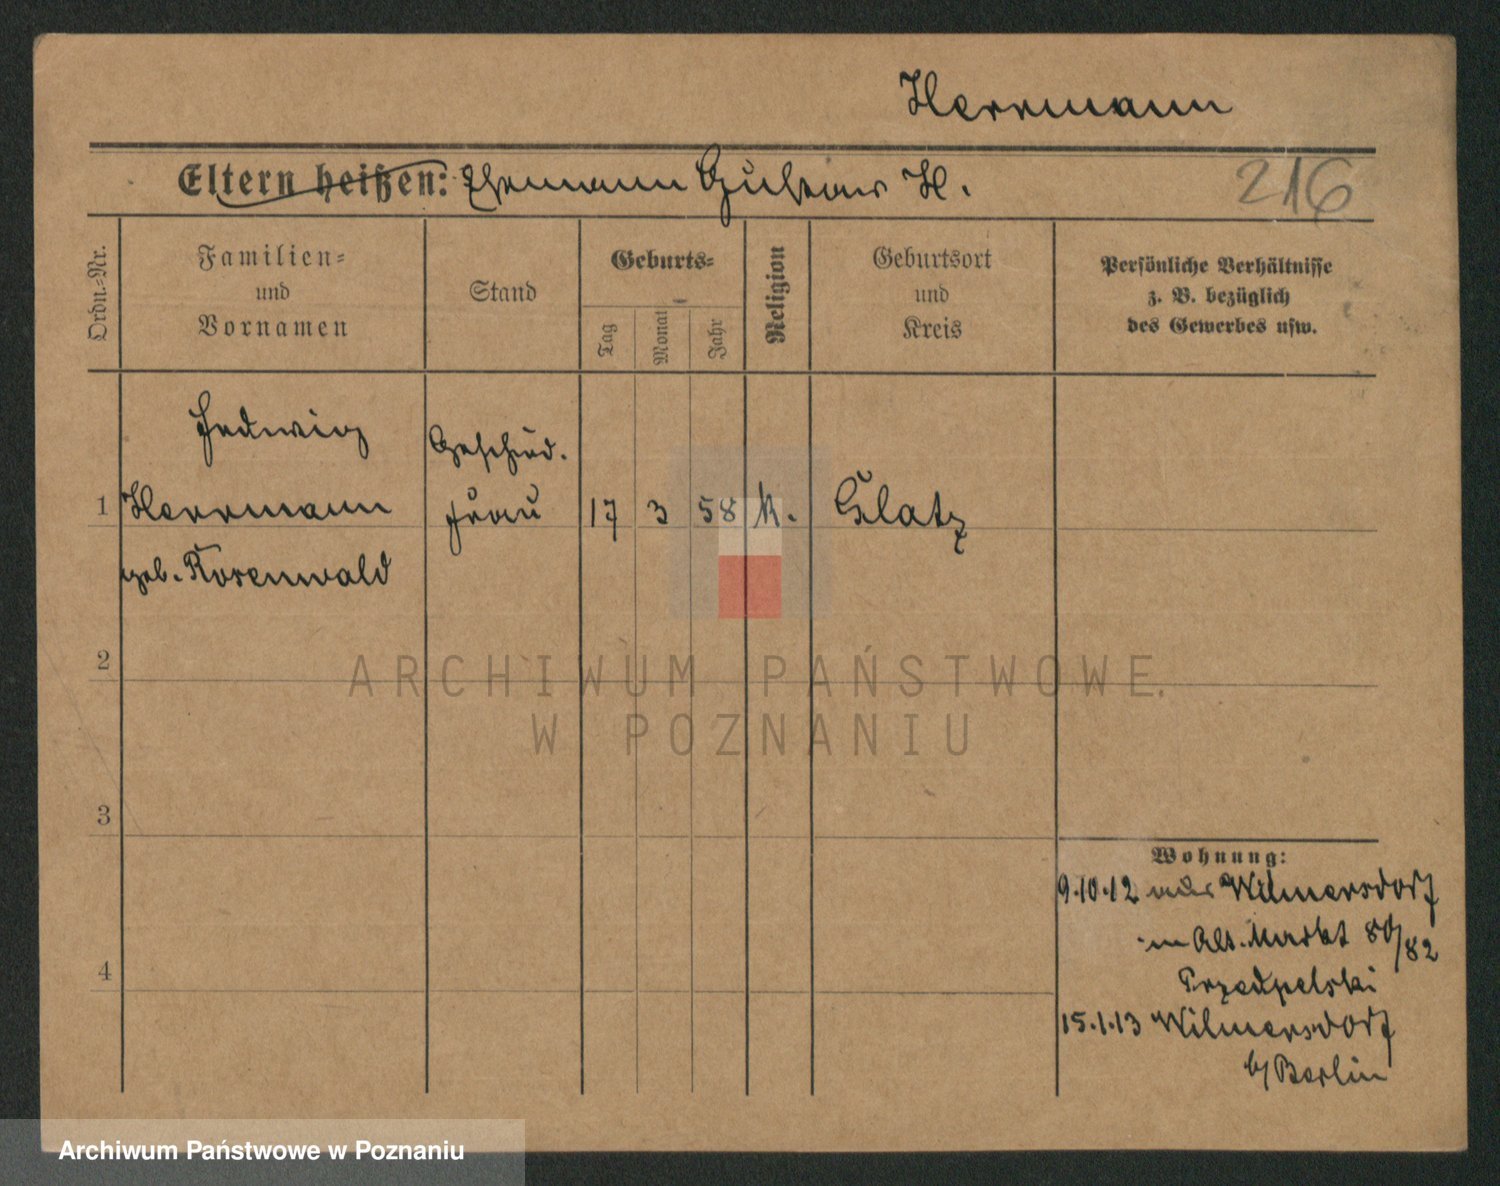 Herrmann
Eltern heißen: Ehemann Gustav H.
216
Ordn.-Nr.
Familien-
und
Vornamen
Stand
Geburts-
Tag
Monat
Jahr
Religion
Geburtsort
und
Kreis
Persönliche Verhältnisse
z. B. bezüglich
des Gewerbes usw.
Hedwig
Geschied.
1 Herrmann Frau 17 3 58 k. Glatz
geb. Rosenwald
2
3
4
Wohnung:
9.10.12 aus Wilmersdorf
in Alt. Markt 80/82
Przedpelski
15.1.13 Wilmersdorf
b/Berlin
ARCHIWUM PAŃSTWOWE
W POZNANIU
Archiwum Państwowe w Poznaniu